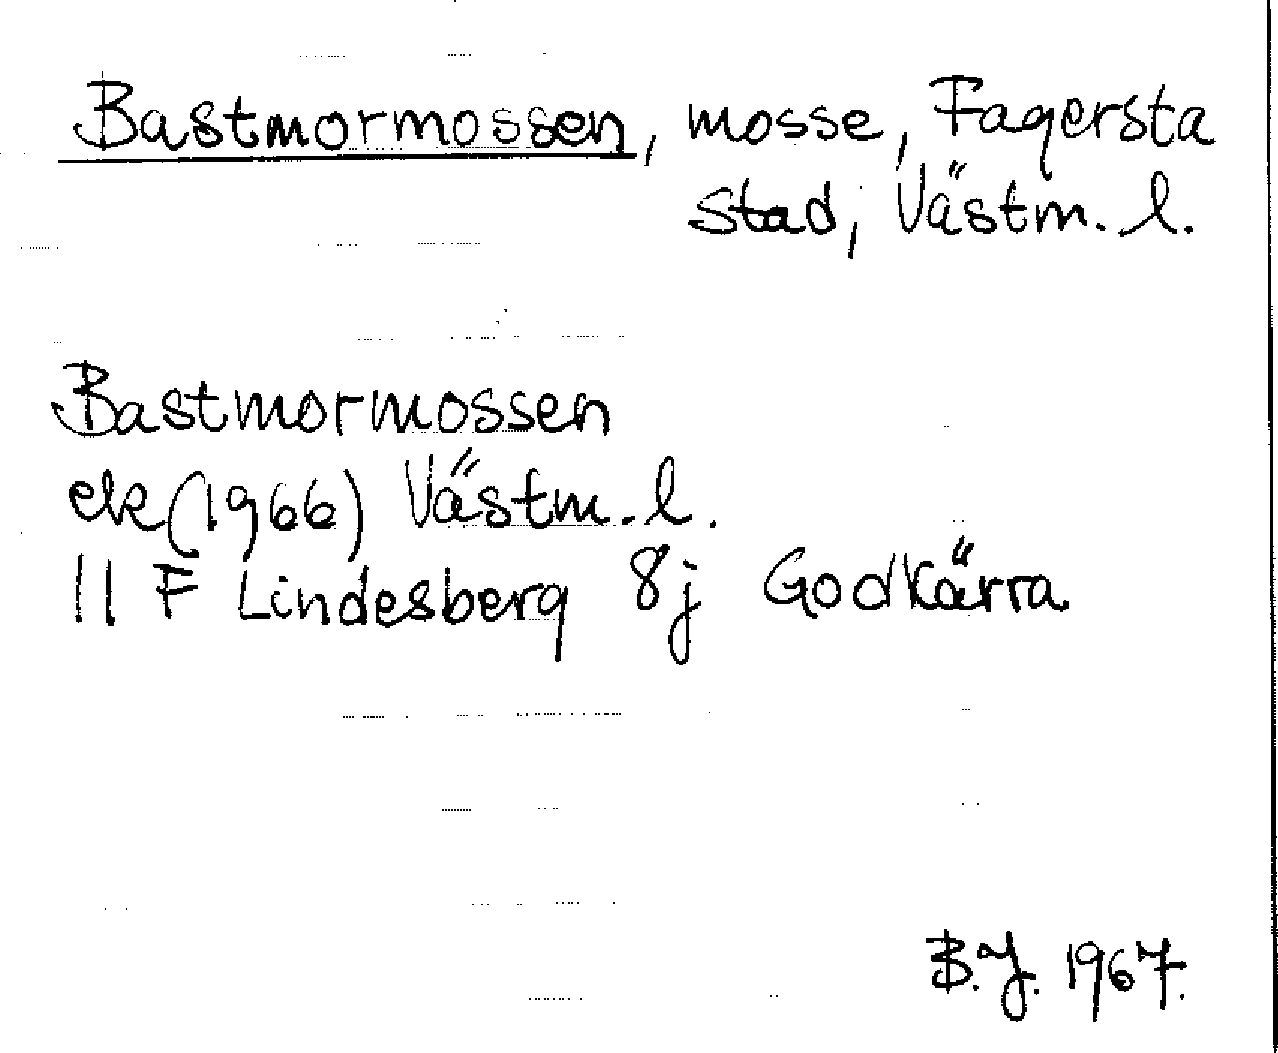 Bastmormossen, mosse, Fagersta
stad, Västm. l.
Bastmormossen
ek (1966) Västm. l.
11 F Lindesberg 8j Godkärra
B.J. 1967.